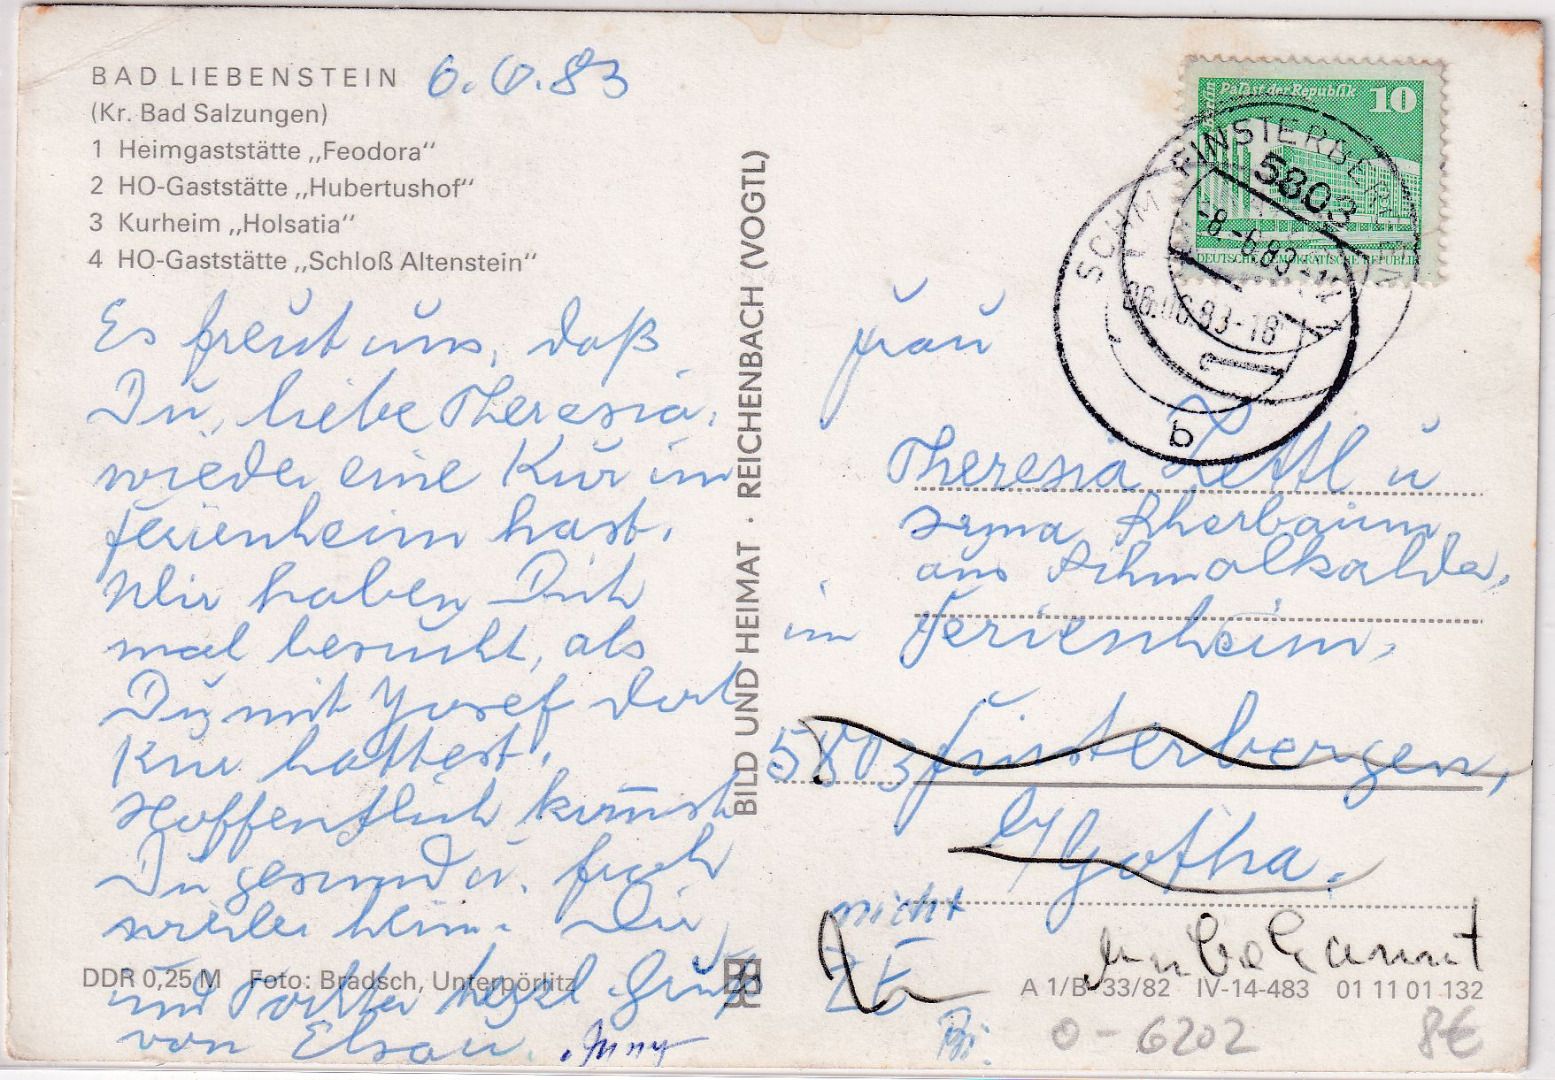 BAD LIEBENSTEIN 6.6.83
(Kr. Bad Salzungen)
1 Heimgaststätte „Feodora“
2 HO-Gaststätte „Hubertushof“
3 Kurheim „Holsatia“
4 HO-Gaststätte „Schloß Altenstein“
Es freut uns, daß
Du, liebe Theresia,
wieder eine Kur im
Ferienheim hast.
Wir haben Dich
mal besucht, als
Du mit Josef dort
Kur hattest.
Hoffentlich kommst
Du gesund u. froh
wieder heim. Dir
und Tochter herzl. Grüße
von Elsa u.
DDR 0,25 M Foto: Bradsch, Unterpörlitz
BILD UND HEIMAT · REICHENBACH (VOGTL)
Berlin
Palast der Republik 10
DEUTSCHE DEMOKRATISCHE REPUBLIK
FINSTERBERGEN
5803
-8.-6.83-11
SCHM
06.06.83-18
b
Frau
Theresia Zettl u
Irma Aherbaum
aus Schmalkalden,
im Ferienheim,
5803 Finsterbergen,
Gotha.
nicht
ZE
unbekannt
A 1/B 33/82 IV-14-483 01 11 01 132
0-6202 8€